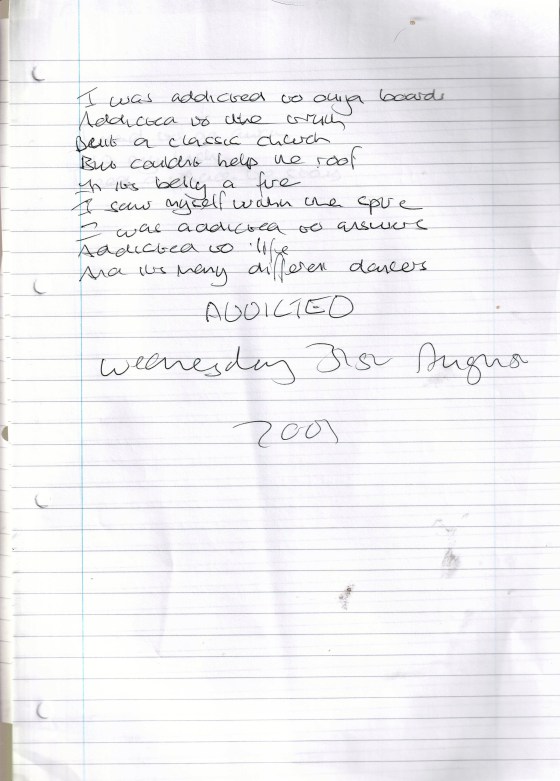 I was addicted to ouija boards
Addicted to the truth
Built a classic church
But couldnt help the roof
In its belly a fire
I saw myself within the spire
I was addicted to answers
Addicted to life
And its many different dancers
ADDICTED
Wednesday 31st August